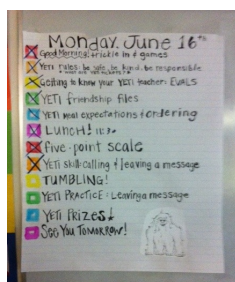 Monday, June 16th
Good Morning: trickle in & games
Yeti rules: be safe, be kind, be responsible
* what are YETI tickets? *
Getting to know your YETI teacher: EVALS
YETI friendship files
YETI meal expectations & ordering
LUNCH! 11:30
five-point scale
YETI skill: calling & leaving a message
TUMBLING!
YETI PRACTICE: Leaving a message
YETI PRIZES!
SEE YOU TOMORROW!